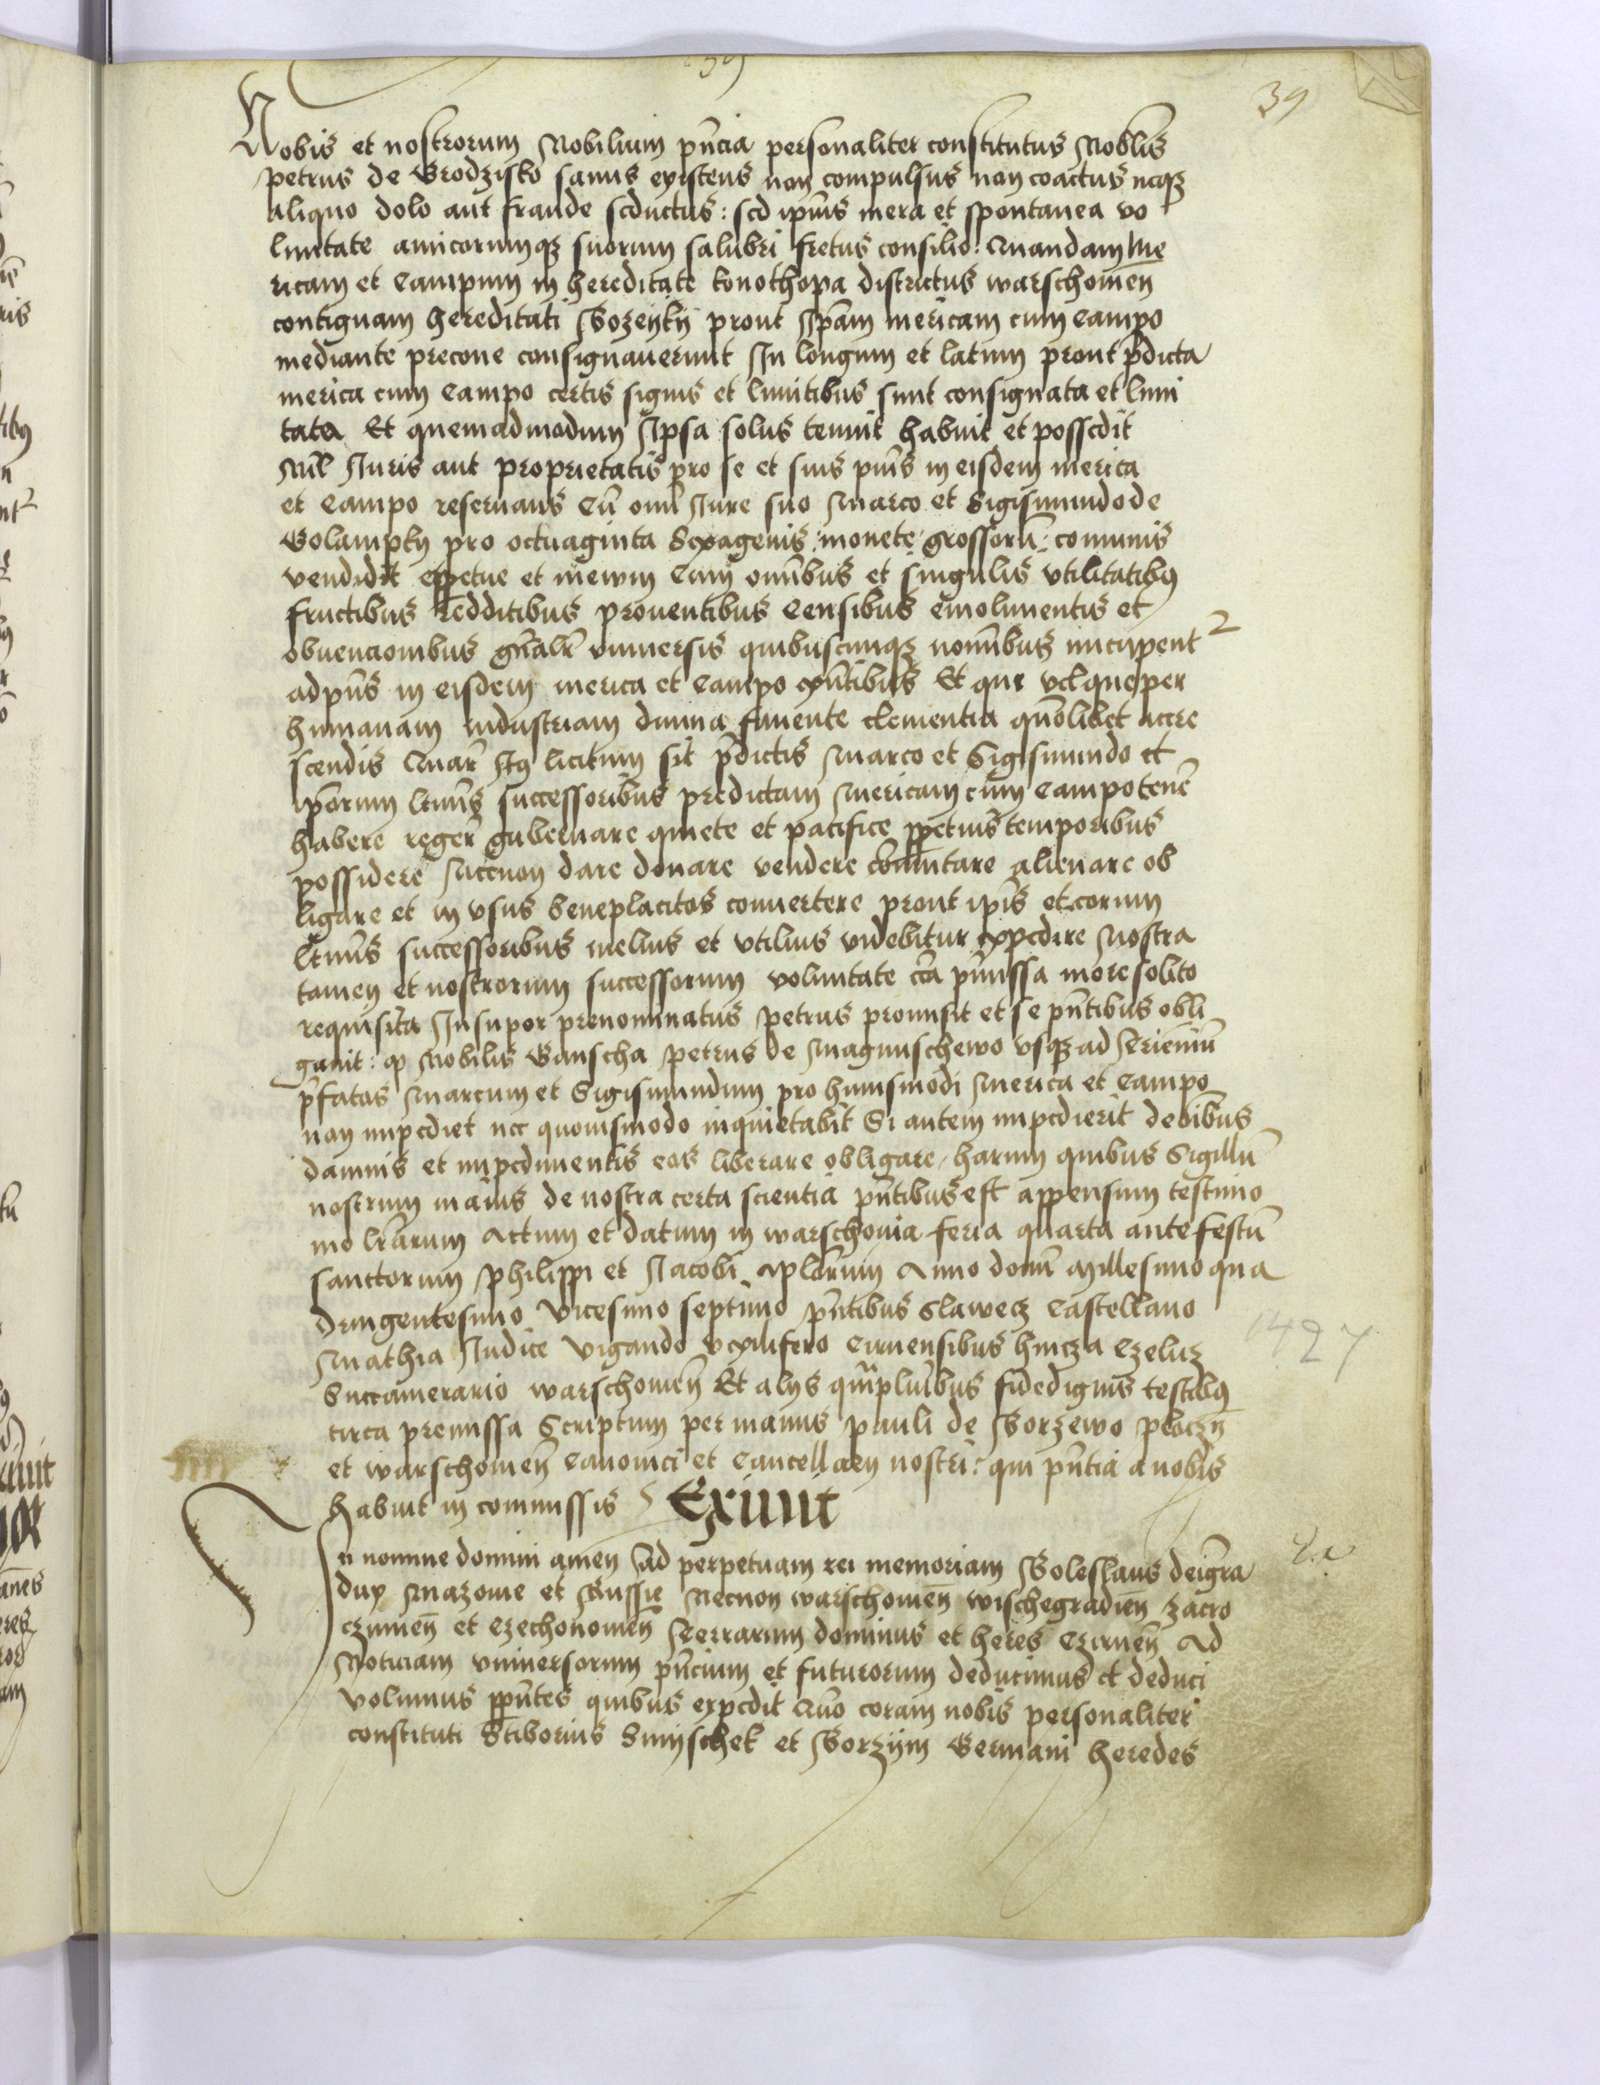 39
39
Nobis et nostrorum Nobilium pn̄cia personaliter constitutus Noblis̄
Petrus de Grodzisko sanus existens non compulsus non coactus neqz
aliquo dolo aut fraude seductus : sed ip̄ius mera et spontanea vo
luntate amicorumqz suorum salubri fretus consilio : Quandam Me
ricam et Campum in hereditate konothopa districtus warschouien̄
contiguam hereditati Bozeyky prout Ip̄am mericam cum Campo
mediante precone consignauerunt In longum et latum prout p̄dicta
merica cum Campo certis signis et limitibus sunt consignata et limi
tata Et quemadmodum Ipsa solus tenuit habuit et possedit
Nil̄ Juris aut proprietatis pro se et suis pn̄is in eisdem merica
et Campo reseruans Cū om̄i Jure suo Marco et Sigismundo de
Golampky pro octuaginta Sexagenis : monete : grossorū : comunis
vendidit et in ewm Cum omībus et singulis vtilitatibꝰ
fructibus redditibus prouentibus Censibus emolumentis et
obuencionibus gn̄alr̄ vniuersis quibuscunqz nomībus nuncupent
ad pn̄s in eisdem merica et Campo exn̄tibus Et que vel que per
humanam Industriam diuina fauente clementia quōlibet accre
scendis Quar̄ Itꝗ licitum sit p̄dictis Marco et Sigismundo et
ip̄orum ltimīs successoribus predictam Mericam cum Campo tener̄
habere reger̄ gubernare quiete et pacifice ꝑpetuis temporibus
possidere Necnon dare donare vendere comutare alienare ob
ligare et in vsus beneplacitos conuertere prout ip̄is et eorum
ltimīs successoribus melius et vtilius videbitur expedire Nostra
tamen et nostrorum successorum voluntate cc̄a pm̄issa more solito
requisita Insuper prenominatus Petrus promisit et se pn̄tibus obli
gauit : ꝙ Nobilis Banscha Petrus de Magnuschewo vsqz ad Trienniū
p̄fatos Marcum et Sigismundum pro huiusmodi Merica et Campo
non impediet nec quouismodo inquietabit Si autem impedierit de oībus
damnis et impedimentis eos liberare obligare , harum quibus Sigillū
nostrum maius de nostra certa scientia pn̄tibus est appensum testimo
nio lr̄arum Actum et datum in warschouia feria quarta ante festū
sanctorum Philippi et Jacobi ap̄lorum Anno domī Millesimo qua
dringentesimo Vicesimo septimo pn̄tibus Slawecz Castellano
Mathia Judice Vigando vexillifero Cirnensibus hincza Czelucz
Succamerario warschouien̄ Et alys qm̄pluribus fidedignis testibꝰ
circa premissa Scriptum per manus Pauli de Borzewo Ploczn̄
et warschouien̄ Canonici et Cancellarij nostri : qui pn̄tia a nobis
habuit in commissis Exiuit
1427
In nomine domini amen Ad perpetuam rei memoriam Boleslaus dei gr̄a
dux Mazouie et Russie Necnon warschouien̄ wischegradien̄ zacro
czimien̄ et Czechonouien̄ Terrarum dominus et heres Czirnen̄ Ad
Noticiam vniuersorum pn̄cium et futurorum deducimus et deduci
volumus ꝑpn̄tes quibus expedit Quō coram nobis personaliter
constituti Stiborius Smyschek et Borzym Germani heredes